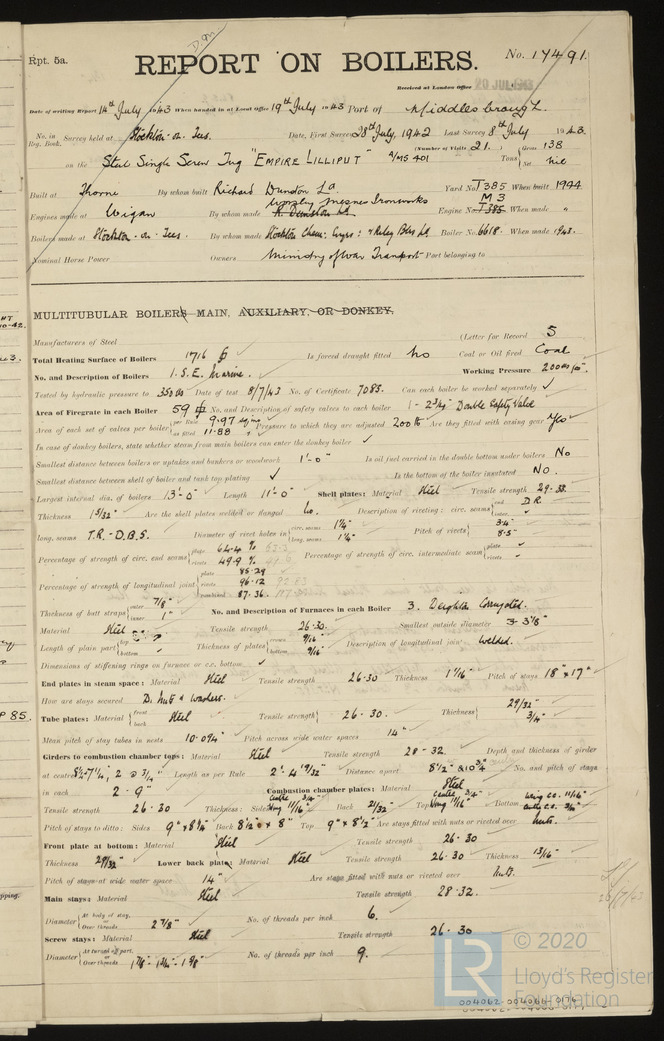 D.M
Rpt. 5a.
REPORT ON BOILERS.
No. 17491.
Received at London Office 20 JUL 1943
Date of writing Report 14th July 1943 When handed in at Local Office 19th July 1943 Port of Middlesbrough.
No. in Reg. Book. Survey held at Stockton-on-Tees. Date, First Survey 28th July, 1942 Last Survey 8th July 1943.
(Number of Visits 21.) Gross 138
on the Steel Single Screw Tug "EMPIRE LILLIPUT" Tons Net nil
Built at Thorne By whom built Richard Dunston Ld. Yard No. T385 When built 1944
Engines made at Wigan By whom made R. Dunston Ld. Worsley Mesnes Ironworks Engine No. T385 M3 When made "
Boilers made at Stockton-on-Tees. By whom made Stockton Chem. Engrs. & Riley Blrs Ld. Boiler No. 6618. When made 1943.
Nominal Horse Power Owners Ministry of War Transport Port belonging to
MULTITUBULAR BOILERS MAIN, AUXILIARY, OR DONKEY.
Manufacturers of Steel (Letter for Record 5
Total Heating Surface of Boilers 1716 Is forced draught fitted No Coal or Oil fired Coal
No. and Description of Boilers 1. S.E. Marine. Working Pressure 200
Tested by hydraulic pressure to 350 Date of test 8/7/43 No. of Certificate 7085. Can each boiler be worked separately ✓
Area of Firegrate in each Boiler 59 No. and Description of safety valves to each boiler 1-2¾" Double Safety Valve
Area of each set of valves per boiler per Rule 9.97 as fitted 11.88 Pressure to which they are adjusted 200 Are they fitted with easing gear Yes
In case of donkey boilers, state whether steam from main boilers can enter the donkey boiler ✓
Smallest distance between boilers or uptakes and bunkers or woodwork 1'-0" Is oil fuel carried in the double bottom under boilers No
Smallest distance between shell of boiler and tank top plating ✓ Is the bottom of the boiler insulated No.
Largest internal dia. of boilers 13'-0" Length 11'-0" Shell plates: Material Steel Tensile strength 29-33.
Thickness 1 5/32" Are the shell plates welded or flanged No. Description of riveting: circ. seams end D.R. inter. ✓
long. seams T.R.-D.B.S. Diameter of rivet holes in circ. seams 1¼" long. seams 1¼" Pitch of rivets 3.4" 8.5"
Percentage of strength of circ. end seams plate 64.4 % rivets 49.9 % Percentage of strength of circ. intermediate seam plate ✓ rivets ✓
Percentage of strength of longitudinal joint plate 85.29 rivets 96.12 combined 87.36
Thickness of butt straps outer 7/8" inner 1" No. and Description of Furnaces in each Boiler 3. Deighton Corrugated.
Material Steel Tensile strength 26-30. Smallest outside diameter 3' 3⅛"
Length of plain part top bottom ✓ Thickness of plates crown 9/16" bottom 9/16" Description of longitudinal joint Welded.
Dimensions of stiffening rings on furnace or c.c. bottom ✓
End plates in steam space: Material Steel Tensile strength 26-30 Thickness 1 1/16" Pitch of stays 18" x 17"
How are stays secured D. Nuts & Washers.
Tube plates: Material front back Steel Tensile strength 26-30. Thickness 29/32" ¾"
Mean pitch of stay tubes in nests 10.094" Pitch across wide water spaces 14"
Girders to combustion chamber tops: Material Steel Tensile strength 28-32. Depth and thickness of girder
at centre 8½-7¼"; 2 @ ¾" Length as per Rule 2'-4 19/32" Distance apart 8½" & 10¾" No. and pitch of stays
in each 2-9" Combustion chamber plates: Material Steel
Tensile strength 26-30 Thickness: Sides Centre ¾" Wing 11/16" Back 21/32" Top Centre ¾" Wing 11/16" Bottom
Pitch of stays to ditto: Sides 9" x 8¼" Back 8½" x 8" Top 9" x 8½" Are stays fitted with nuts or riveted over Nuts.
Front plate at bottom: Material Steel Tensile strength 26-30
Thickness 29/32" Lower back plate: Material Steel Tensile strength 26-30 Thickness 13/16"
Pitch of stays at wide water space 14" Are stays fitted with nuts or riveted over Nuts.
Main stays: Material Steel Tensile strength 28-32.
Diameter At body of stay, or Over threads 2⅞" No. of threads per inch 6.
Screw stays: Material Steel Tensile strength 26-30
Diameter At turned off part, or Over threads No. of threads per inch 9.
LR © 2020
Lloyd's Register
Foundation
004062-004066-0174